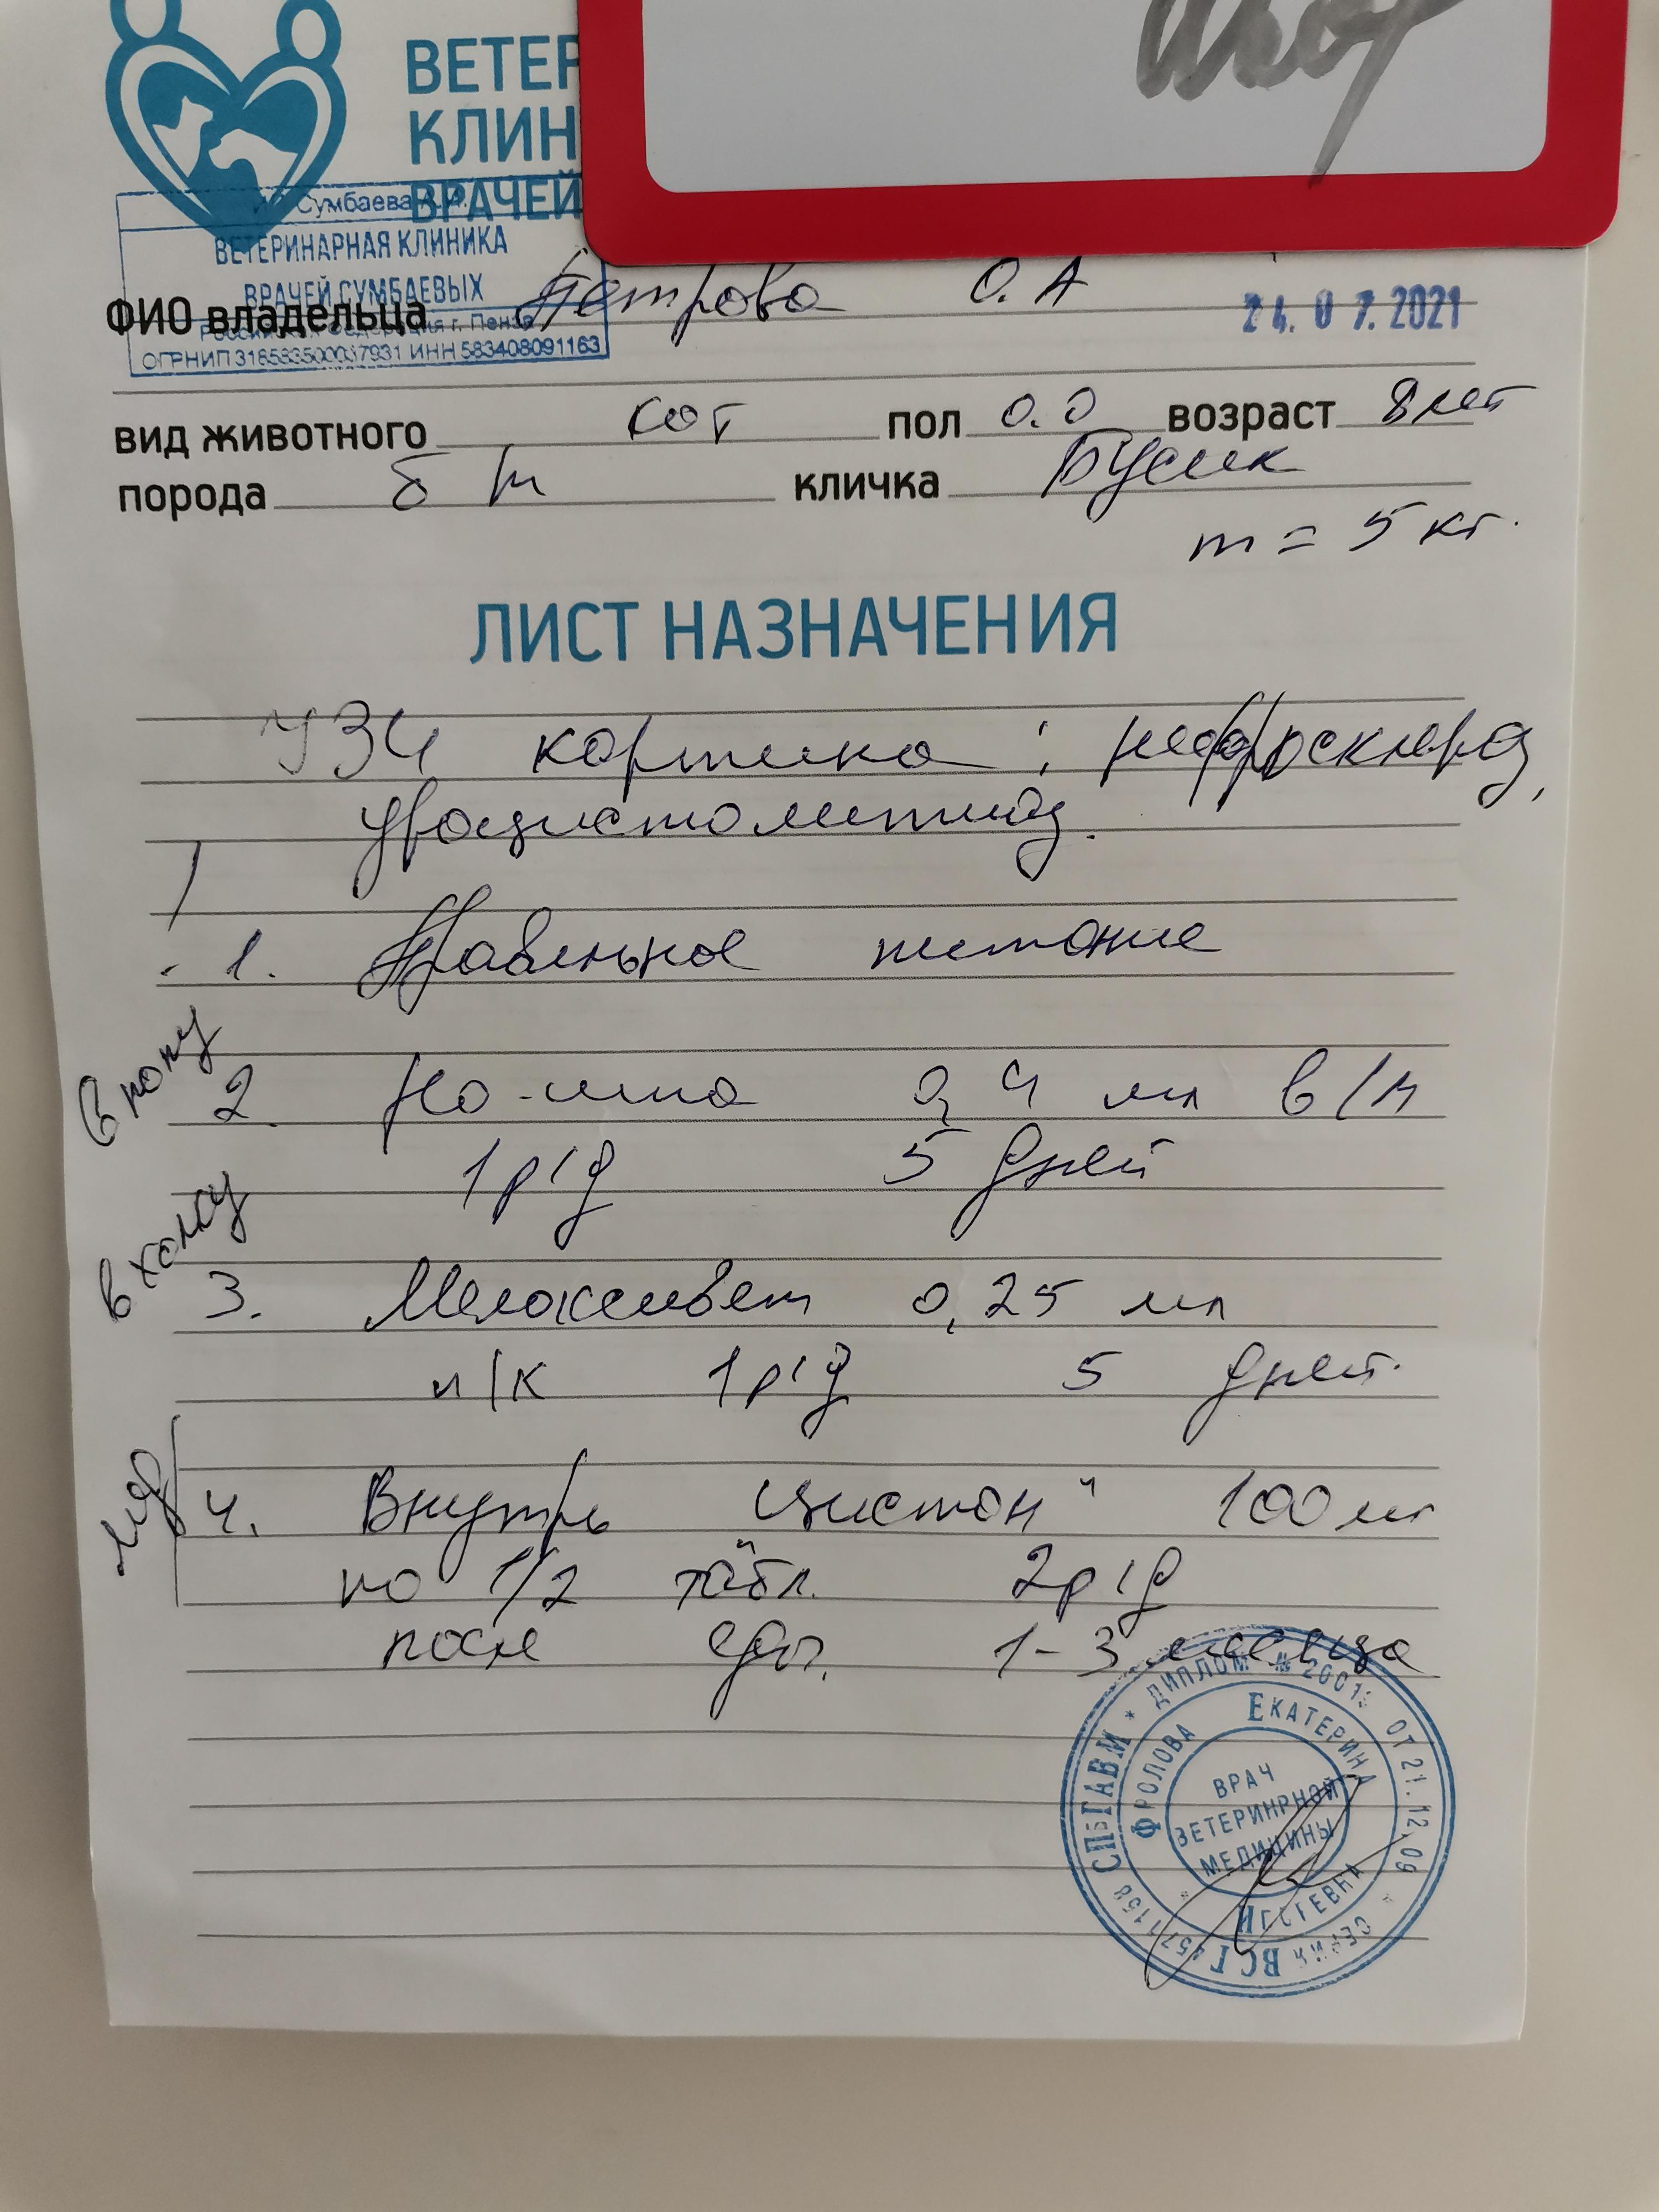 ВЕТЕР
КЛИН
ВРАЧЕЙ
ИП Сумбаева А.И.
ВЕТЕРИНАРНАЯ КЛИНИКА
ВРАЧЕЙ СУМБАЕВЫХ
Российская Федерация г. Пенза
ИНН 583408091163
ФИО владельца Петрова О.А
24.07.2021
вид животного кот пол о.о возраст 8 лет
порода б/п кличка Бусик
m = 5 кг.
ЛИСТ НАЗНАЧЕНИЯ
УЗИ картина: нефросклероз,
уроцистолитиаз.
1. Правильное питание
2. Но-шпа 0,4 мл в/м
1 р/д 5 дней
в холку
3. Мелоксивет 0,25 мл
п/к 1 р/д 5 дней.
4. Внутрь "Цистон" 100 мг
по 1/2 табл. 2 р/д
после еды. 1-3 месяца
СПбГАВМ * ДИПЛОМ № ОТ 21.12.09 * СЕРИЯ ВСГ
ФРОЛОВА ЕКАТЕРИНА
ВРАЧ
ВЕТЕРИНРНОЙ
МЕДИЦИНЫ